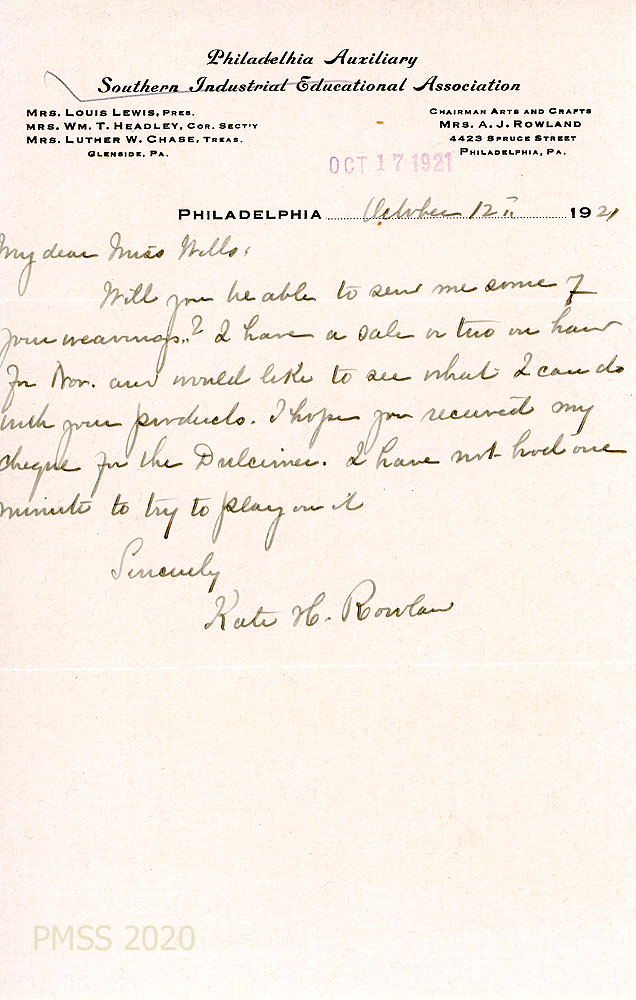 Philadelhia Auxiliary
Southern Industrial Educational Association
Mrs. Louis Lewis, Pres.
Mrs. Wm. T. Headley, Cor. Sect'y
Mrs. Luther W. Chase, Treas.
Glenside, Pa.
Chairman Arts and Crafts
Mrs. A. J. Rowland
4423 Spruce Street
Philadelphia, Pa.
OCT 17 1921
Philadelphia October 12 1921
My dear Miss Wells:
Will you be able to send me some of
your weavings.? I have a sale or two on hand
for Nov. and would like to see what I can do
with your products. I hope you received my
cheque for the Dulcimer. I have not had one
minute to try to play on it
Sincerely
Kate H. Rowland
PMSS 2020